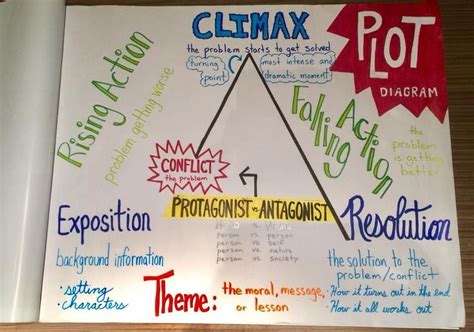 CLIMAX
the problem starts to get solved
turning point
most intense and
dramatic moment
PLOT
DIAGRAM
Rising Action
problem getting worse
Falling
Action
the
problem
is getting
better
CONFLICT
the problem
PROTAGONIST vs. ANTAGONIST
person vs. person
person vs. self
person vs. nature
person vs. society
Exposition
background information
• setting
• characters
Resolution
the solution to the
problem/conflict
• How it turns out in the end
• How it all works out
Theme: the moral, message,
or lesson